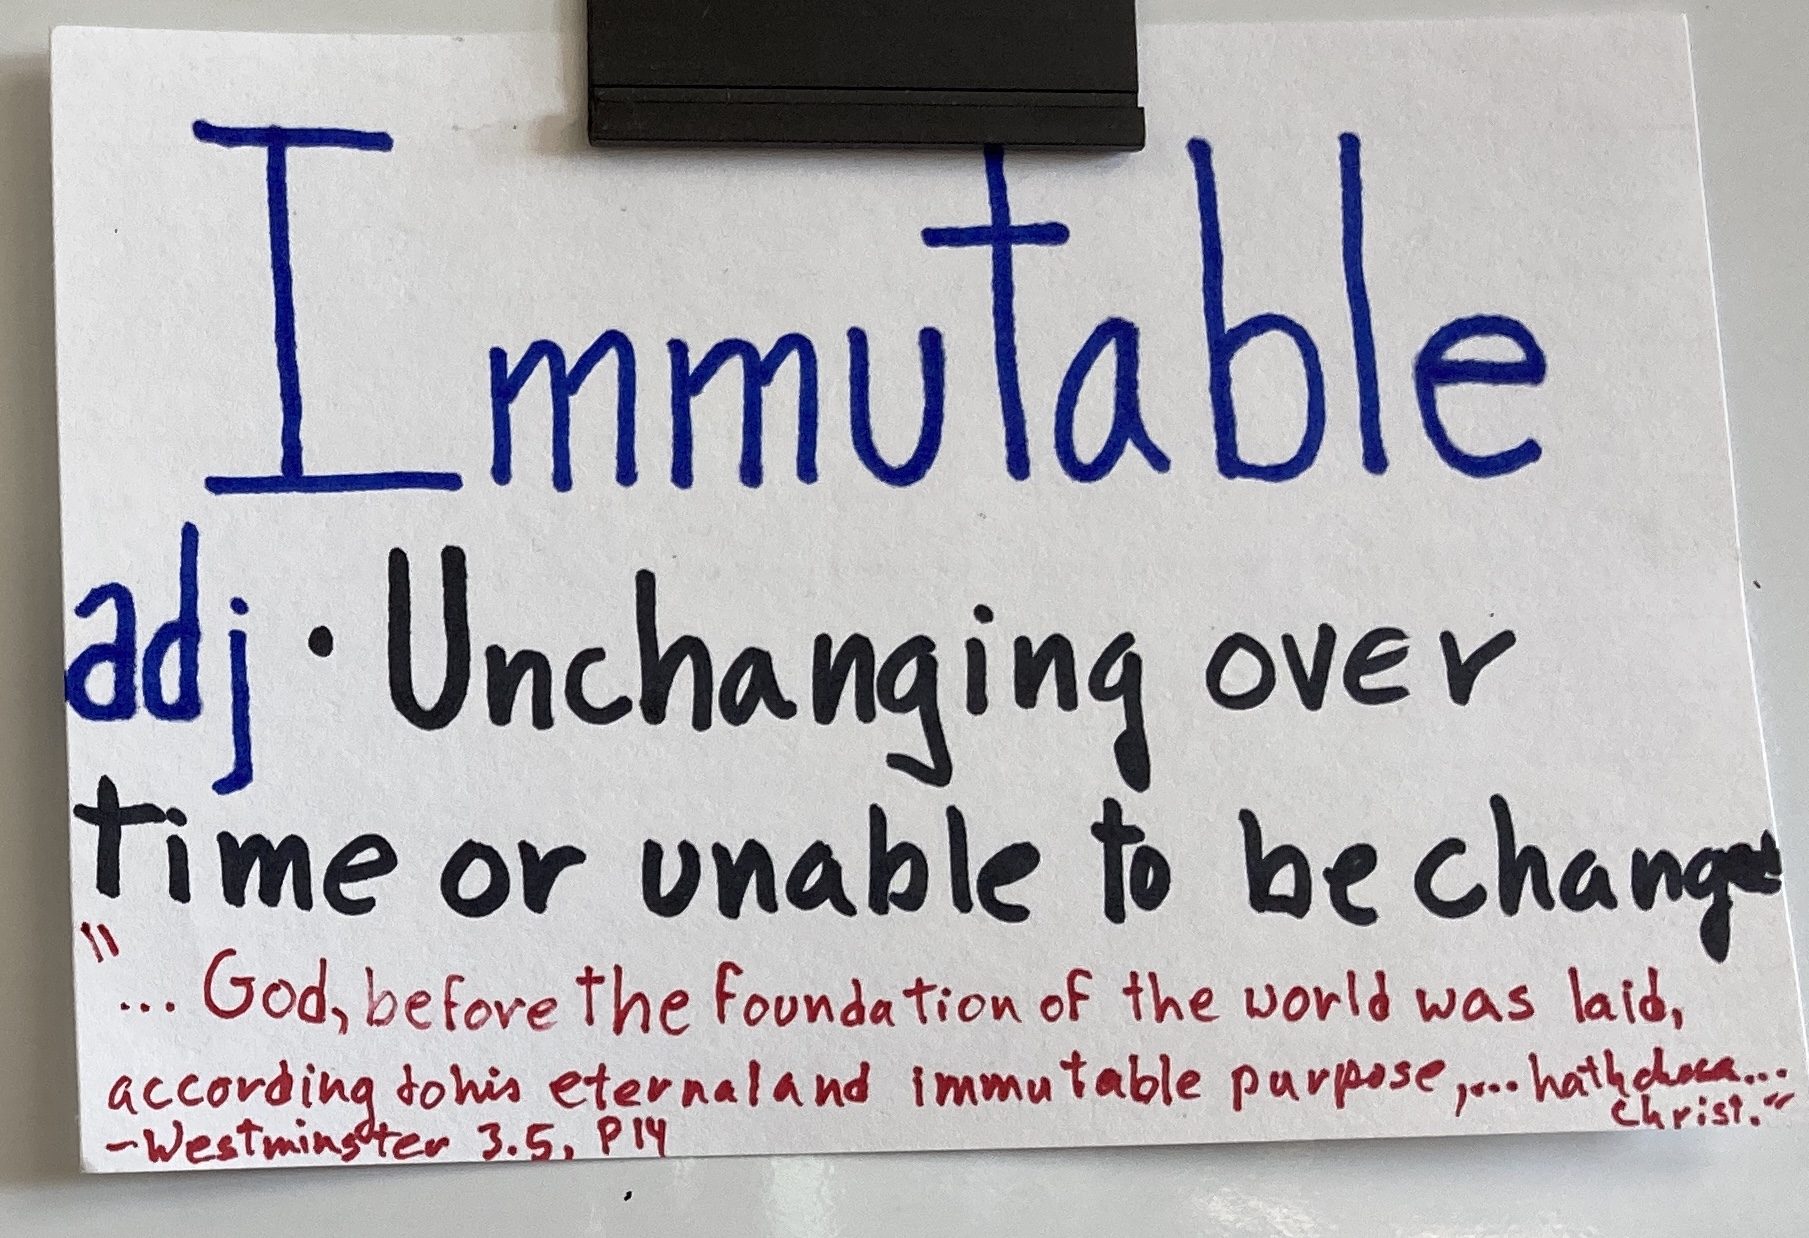 Immutable
adj · Unchanging over
time or unable to be changed
"... God, before the foundation of the world was laid,
according to his eternal and immutable purpose,... hath ...
Christ."
-Westminster 3.5, P14